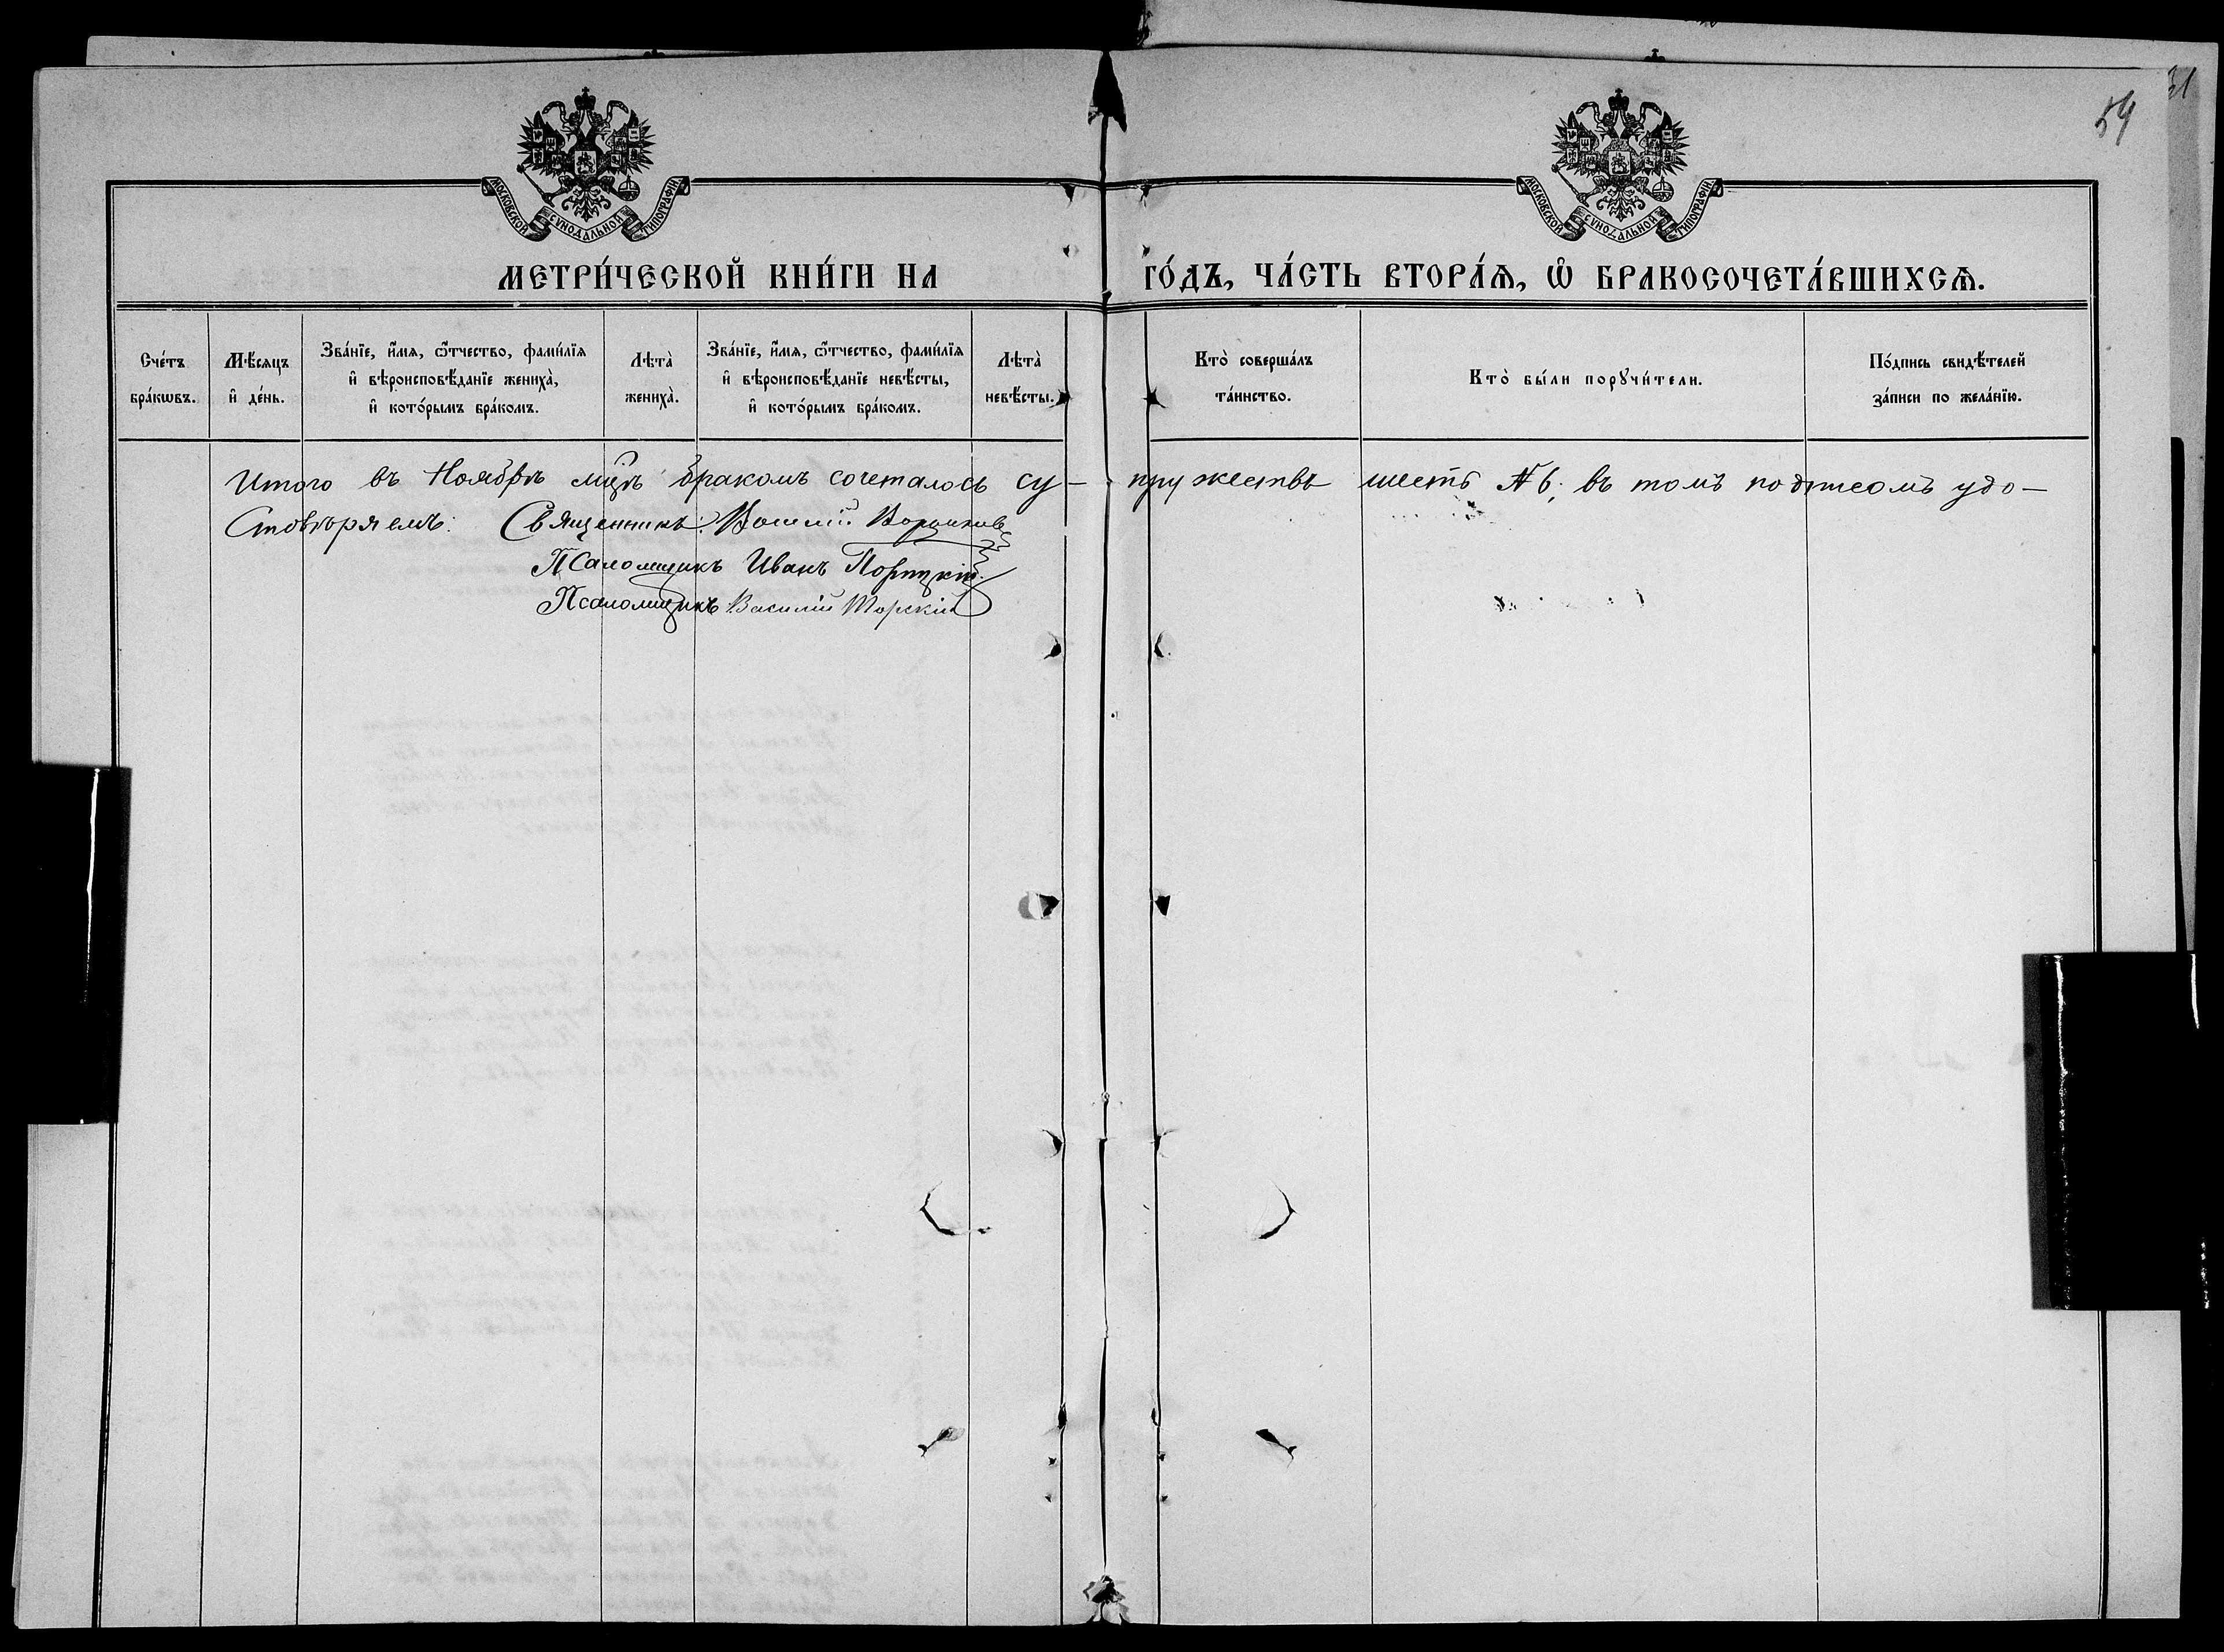 54
МОСКОВСКОЙ СѴНОДАЛЬНОЙ ТИПОГРАФІИ.
МОСКОВСКОЙ СѴНОДАЛЬНОЙ ТИПОГРАФІИ.
МЕТРИ́ЧЕСКОЙ КНИ́ГИ НА ГО́ДЪ, ЧА́СТЬ ВТОРА́Ѧ, Ѡ҆ БРАКОСОЧЕТА́ВШИХСѦ.
Сче́тъ
бра́кѡвъ.
Мѣ́сяцъ
и҆ де́нь.
Зва́нїе, и҆́мя, ѻ҆́тчество, фами́лїя
и҆ вѣроисповѣ́данїе жениха̀,
и҆ кото́рымъ бра́комъ.
Лѣта̀
жениха̀.
Зва́нїе, и҆́мя, ѻ҆́тчество, фами́лїя
и҆ вѣроисповѣ́данїе невѣ́сты,
и҆ кото́рымъ бра́комъ.
Лѣта̀
невѣ́сты.
Кто̀ соверша́лъ
та́инство.
Кто̀ бы́ли порꙋчи́тели.
По́дпись свидѣ́телей
за́писи по жела́нїю.
Итого въ Ноябрѣ мцѣ бракомъ сочеталось су- пружествъ шесть № 6; въ томъ подписомъ удо-
Стовѣряемъ: Священникъ:
Псаломщикъ Иванъ
Псаломщикъ Василій Торскій